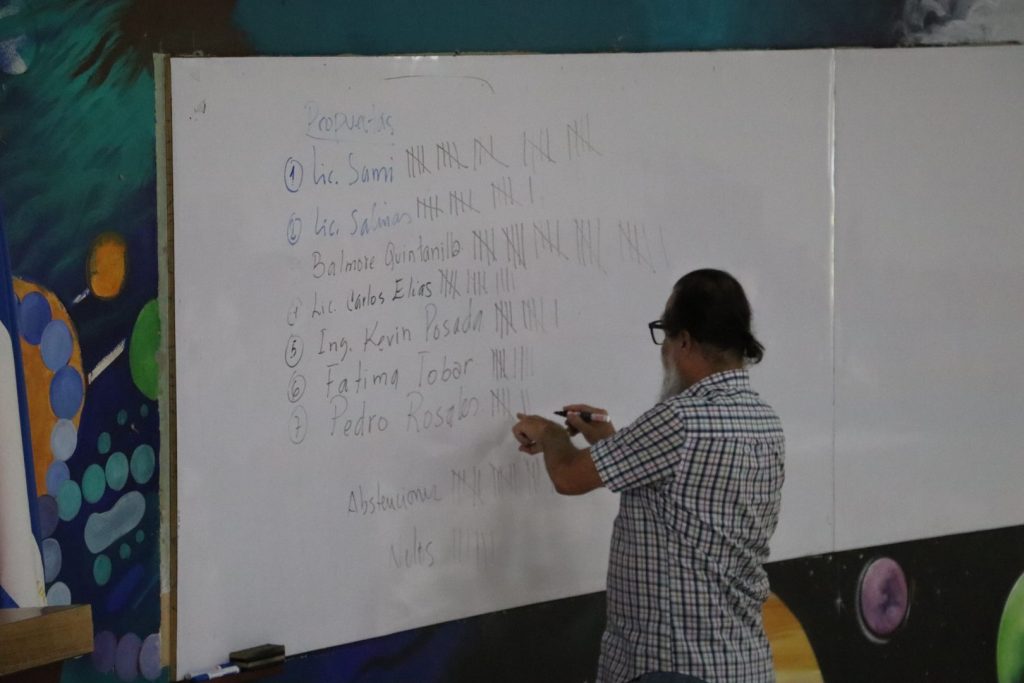 Propuestas
① Lic. Sami
② Lic. Salinas
Balmore Quintanilla
Lic. Carlos Elias
⑤ Ing. Kevin Posada
⑥ Fatima Tobar
⑦ Pedro Rosales
Abstenciones